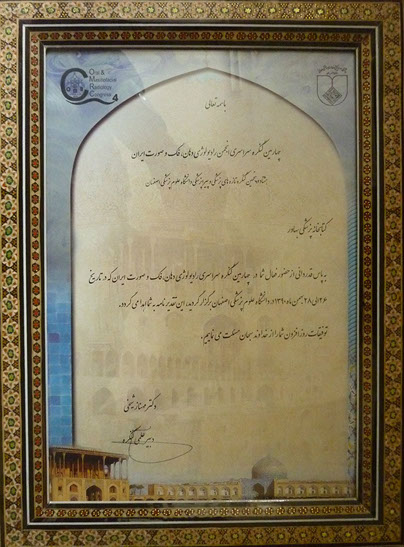 Oral &
Maxillofacial
Radiology
Congress 4
باسمه تعالی
چهارمین کنگره سراسری انجمن رادیولوژی دهان، فک و صورت ایران
هشتادو هفتمین کنگره تازه های پزشکی و پیراپزشکی دانشگاه علوم پزشکی اصفهان
کتابخانه پزشکی بهادر
به پاس قدردانی از حضور فعال شما در چهارمین کنگره سراسری رادیولوژی دهان، فک و صورت ایران که در تاریخ
۲۶ الی ۲۸ بهمن ماه ۱۳۹۰ در دانشگاه علوم پزشکی اصفهان برگزار گردید، این تقدیرنامه به شما اهدا می گردد.
توفیقات روزافزون شما را از خداوند سبحان مسئلت می نماییم.
دکتر مهناز شیخی
دبیر علمی کنگره